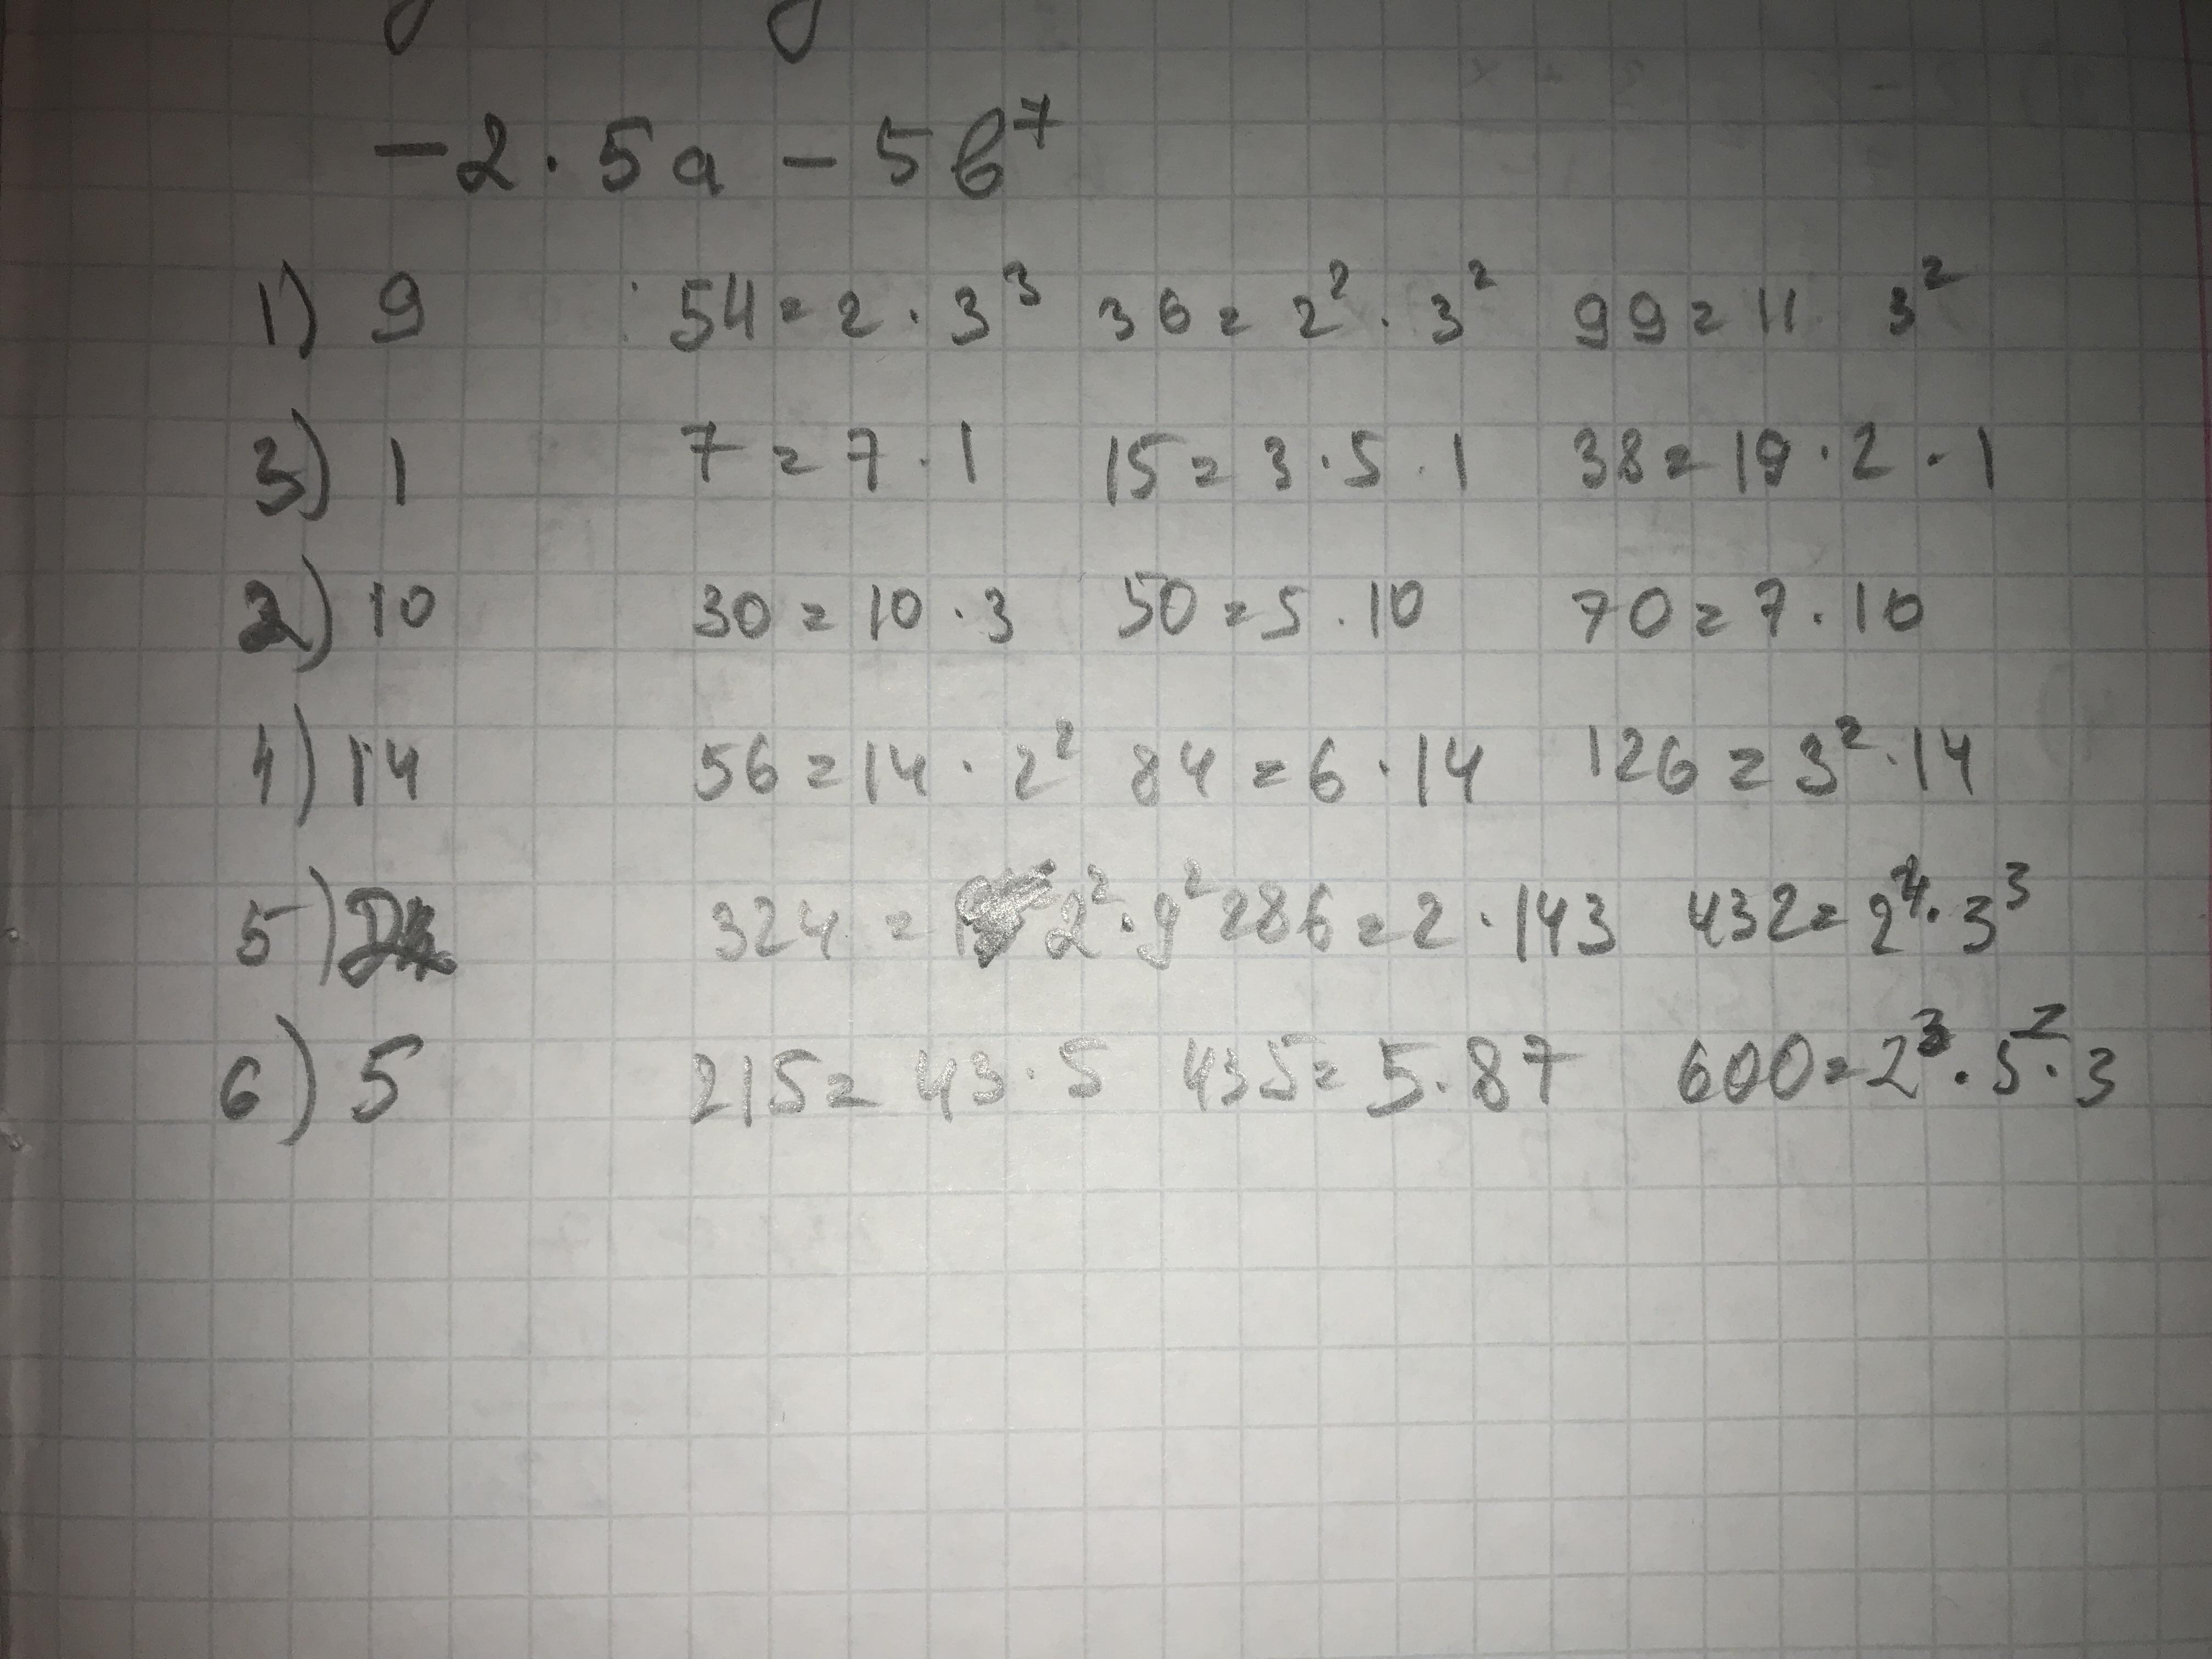 -2·5a - 5b⁷
1) 9 54=2·3³ 36=2²·3² 99=11 3²
3) 1 7=7·1 15=3·5·1 38=19·2·1
2) 10 30=10·3 50=5·10 70=7·10
4) 14 56=14·2² 84=6·14 126=3²·14
5) 2 324= 2²·9² 286=2·143 432=2⁴·3³
6) 5 215=43·5 435=5·87 600=2³·5²·3